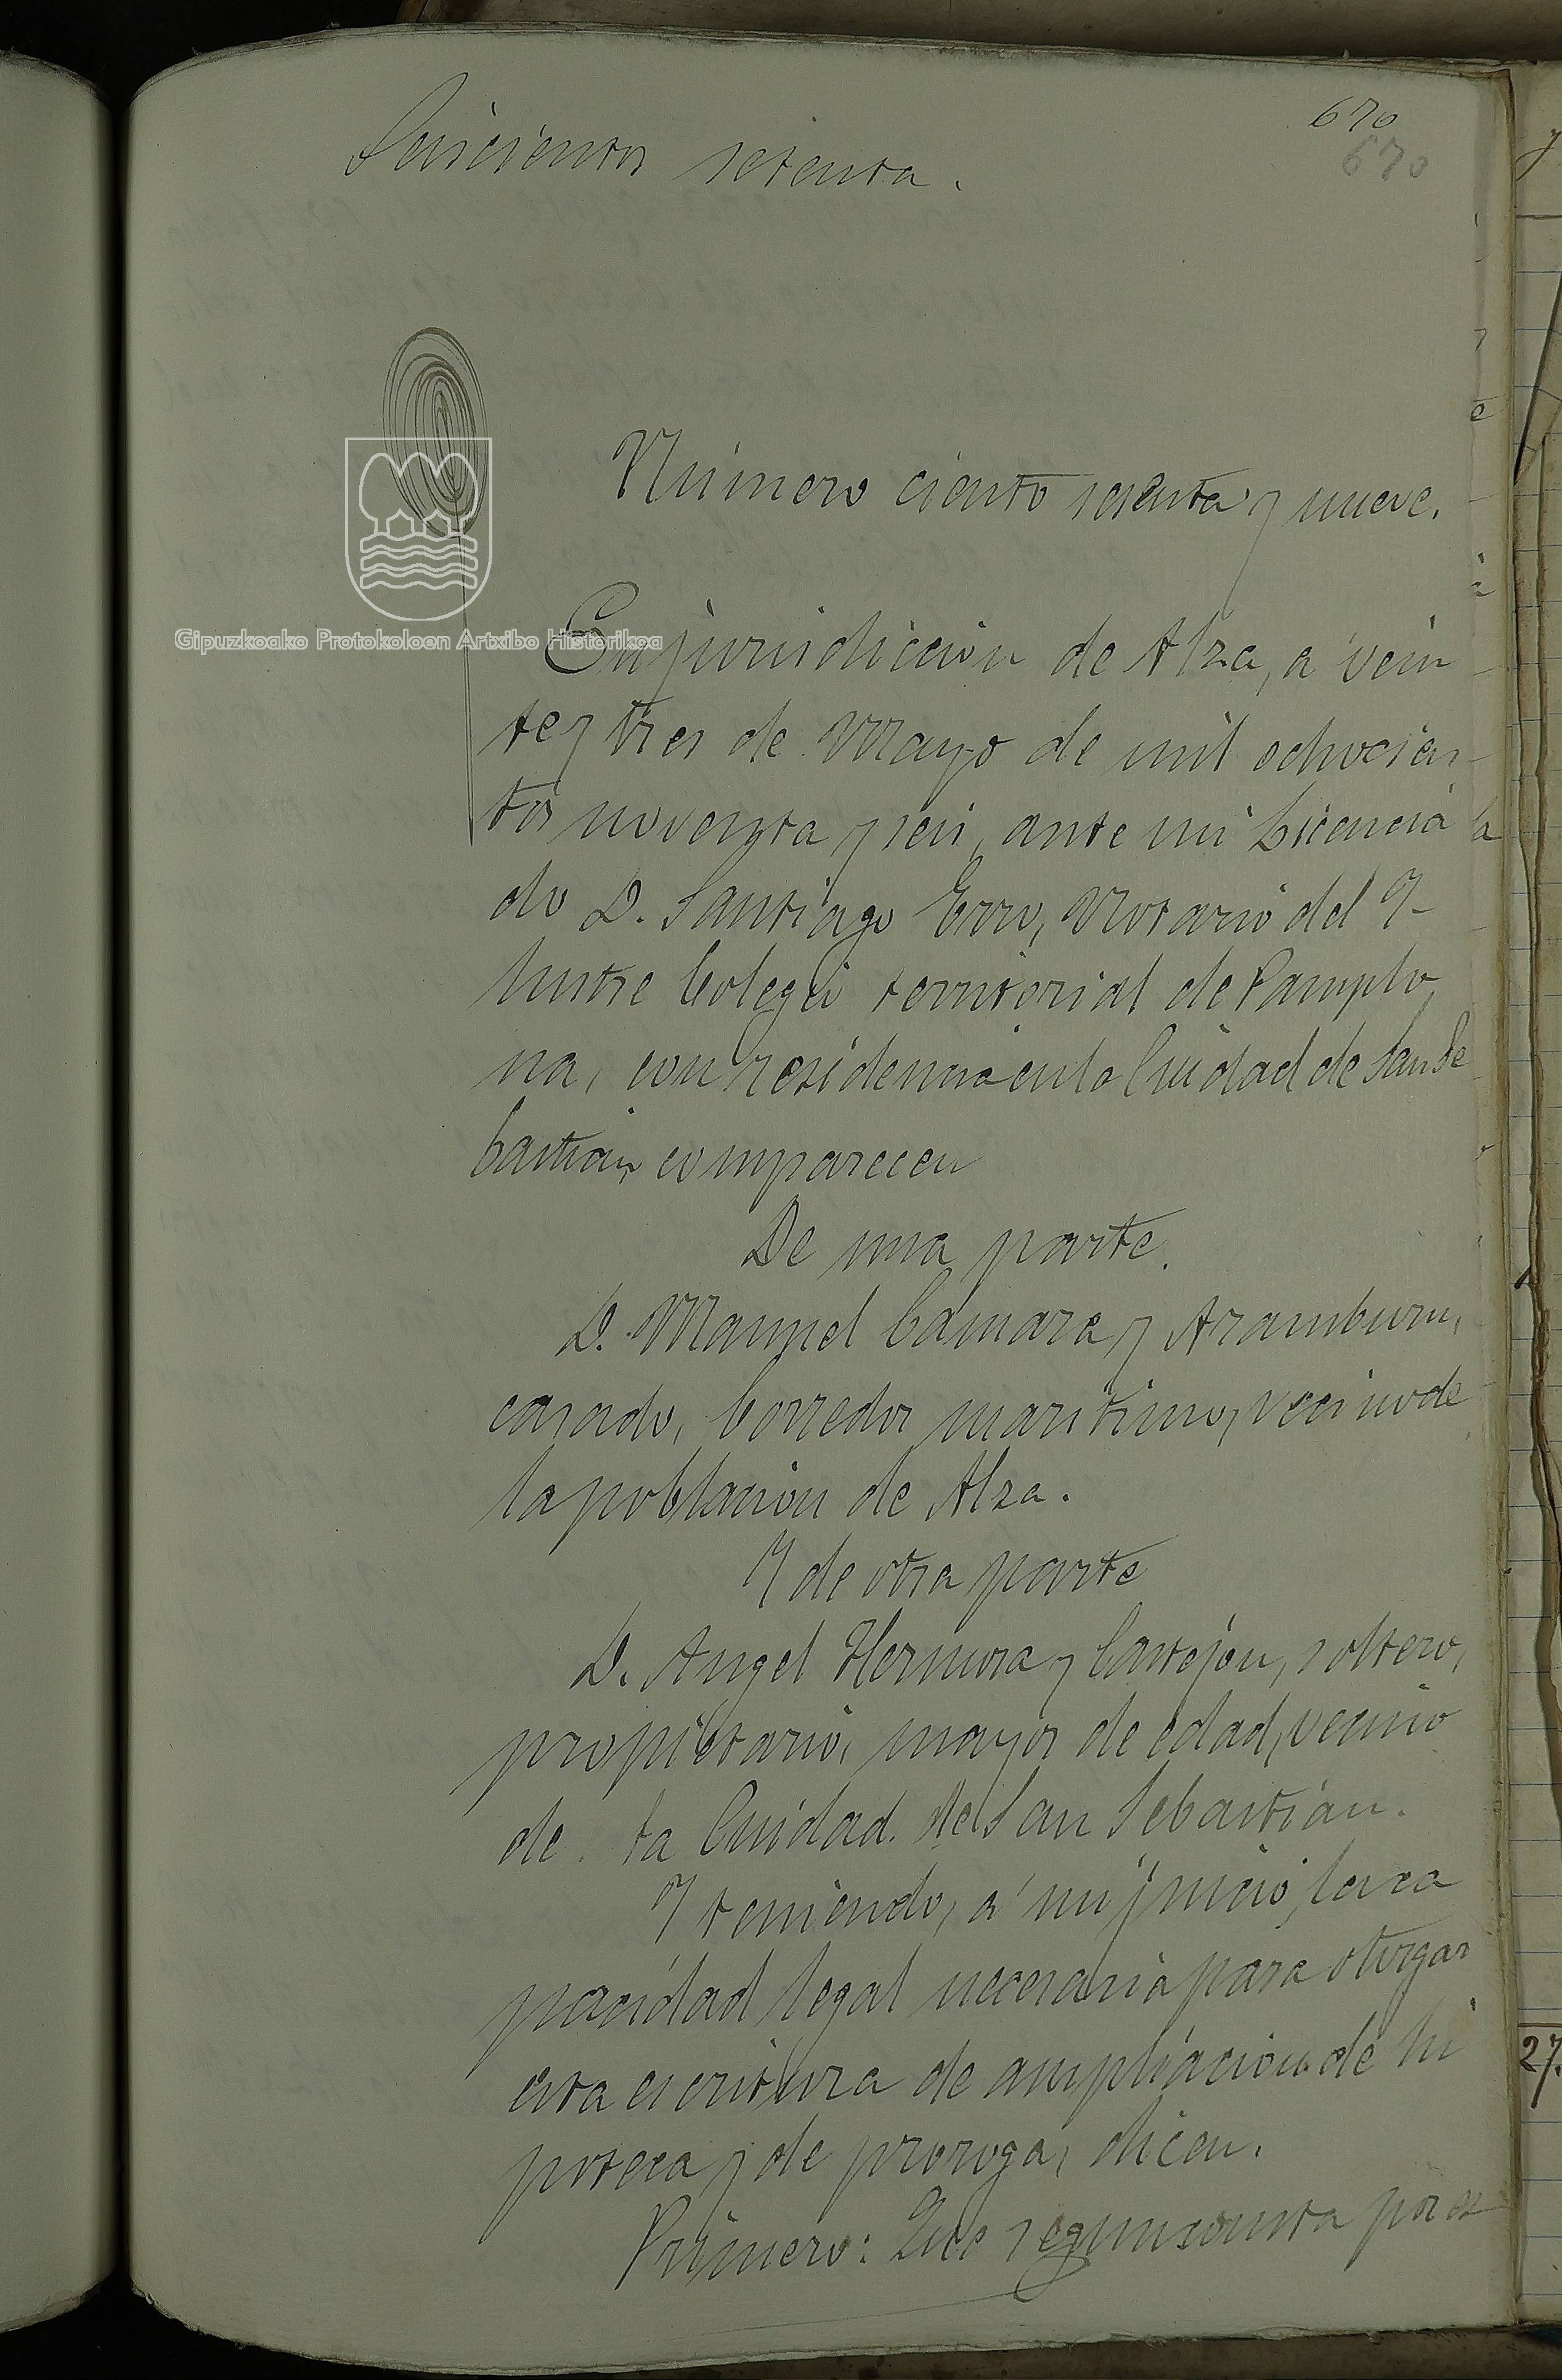 670
Seiscientos setenta.
670
Número ciento sesenta y nueve.
Gipuzkoako Protokoloen Artxibo Historikoa
En jurisdicción de Alza, a vein
te y tres de Mayo de mil ochocien
tos noventa y seis, ante mi Licencia
do D. Santiago Erro, Notario del I-
lustre Colegio territorial de Pamplo
na, con residencia en la Ciudad de San Se
bastián, comparecen
De una parte.
D. Manuel Camara y Aramburu,
casado, Corredor marítimo, vecino de
la población de Alza.
Y de otra parte
D. Angel Hermosa y Castejón, soltero,
propietario, mayor de edad, vecino
de la Ciudad de San Sebastián.
Y teniendo, a mi juicio, la ca
pacidad legal necesaria para otorgar
esta escritura de ampliación de hi
poteca y de proroga, dicen.
Primero: Que segun consta por es
27.